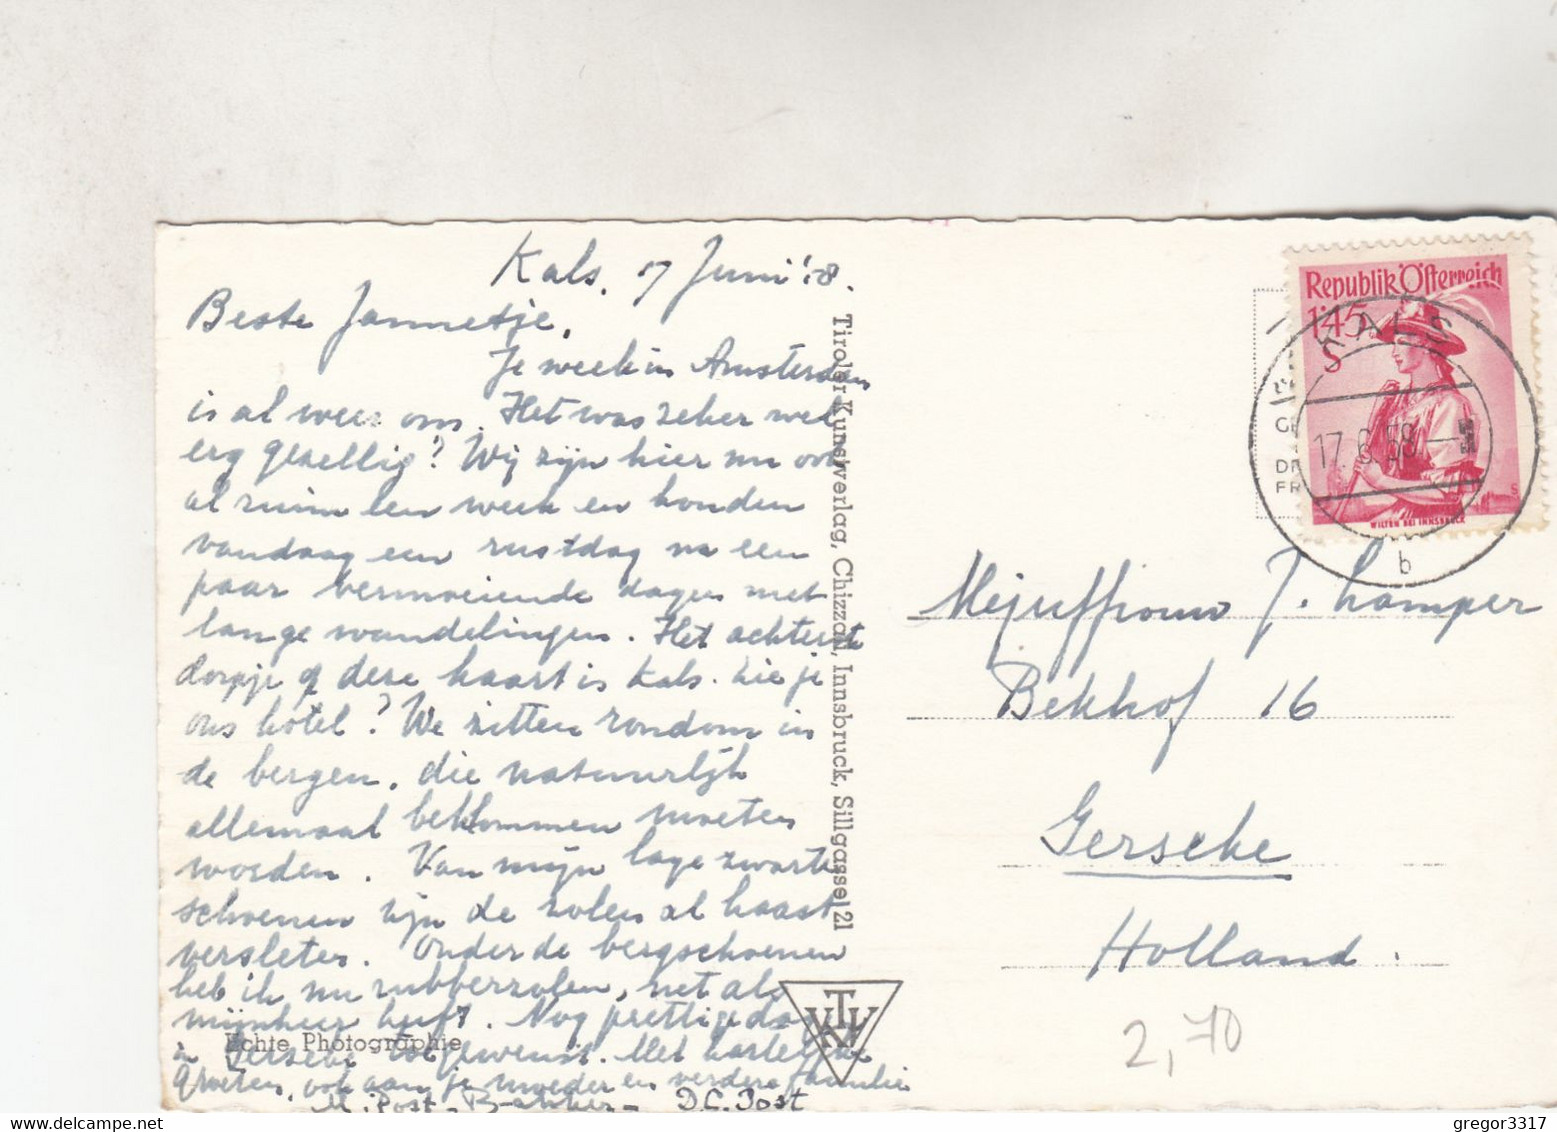 Kals, 17 Juni '58.
Beste Jannetje,
Je week in Amsterdam
is al weer om. Het was zeker wel
erg gezellig? Wij zijn hier nu ook
al ruim een week en houden
vandaag een rustdag na een
paar vermoeiende dagen met
lange wandelingen. Het achterste
dorpje op deze kaart is Kals. Zie je
ons hotel? We zitten rondom in
de bergen, die natuurlijk
allemaal beklommen moeten
worden. Van mijn lage zwarte
schoenen zijn de zolen al haast
versleten. Onder de bergschoenen
heb ik nu rubberzolen, net als
mijnheer heeft. Nog prettige dagen
in Yerseke toegewenst. Met hartelijke
groeten, ook aan je moeder en verdere familie
Post - Bakker - D.C. Post
Echte Photographie
Tiroler Kunstverlag, Chizzali, Innsbruck, Sillgasse 21
KTV
Republik Österreich
1'45
S
WILTEN BEI INNSBRUCK
KALS
17. 6. 58
b
Mejuffrouw J. Lamper
Bekhof 16
Yerseke
Holland.
2,70
gregor3317